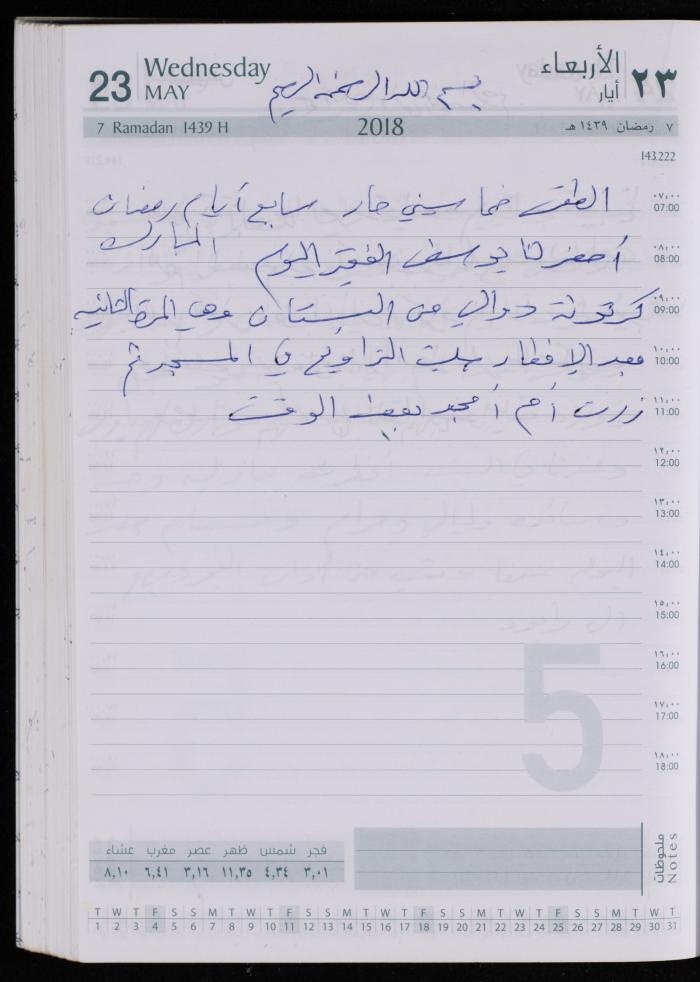 23 Wednesday MAY
الأربعاء أيار ٢٣
بسم الله الرحمن الرحيم
7 Ramadan 1439 H 2018 ٧ رمضان ١٤٣٩ هـ
143.222
الطقس خماسيني حار سابع أيام رمضان
المبارك
أحضر لنا يوسف الفقيه اليوم
كرتونة دوالي من البستان وهي المرة الثانية
فبعد الإفطار صليت التراويح في المسجد ثم
زرت أم أمجد بعض الوقت
٠٧:٠٠
07:00
٠٨:٠٠
08:00
٠٩:٠٠
09:00
١٠:٠٠
10:00
١١:٠٠
11:00
١٢:٠٠
12:00
١٣:٠٠
13:00
١٤:٠٠
14:00
١٥:٠٠
15:00
١٦:٠٠
16:00
١٧:٠٠
17:00
١٨:٠٠
18:00
5
ملحوظات
Notes
فجر شمس ظهر عصر مغرب عشاء
٣,٠١ ٤,٣٤ ١١,٣٥ ٣,١٦ ٦,٤١ ٨,١٠
T W T F S S M T W T F S S M T W T F S S M T W T F S S M T W T
1 2 3 4 5 6 7 8 9 10 11 12 13 14 15 16 17 18 19 20 21 22 23 24 25 26 27 28 29 30 31